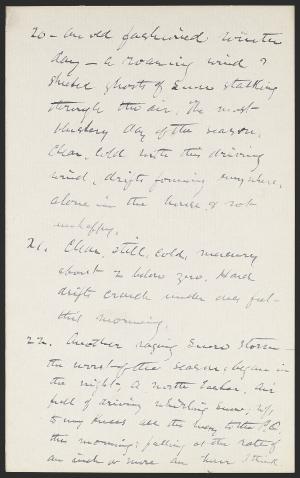 20 - An old fashioned winter
day - a roaring wind &
sheeted ghosts of snow stalking
through the air. The most
blustery day of the season.
Clear, cold with this driving
wind, drifts forming everywhere,
alone in the house & not
unhappy.
21. Clear, still, cold, mercury
about 2 below zero. Hard
drifts crunch under my feet
this morning.
22. Another raging snow storm -
the worst of the season; began in
the night, a north Easter. Air
full of driving whirling snow;
to my knees all the way to the P.O.
this morning; falling at the rate of
an inch or more an hour I think.